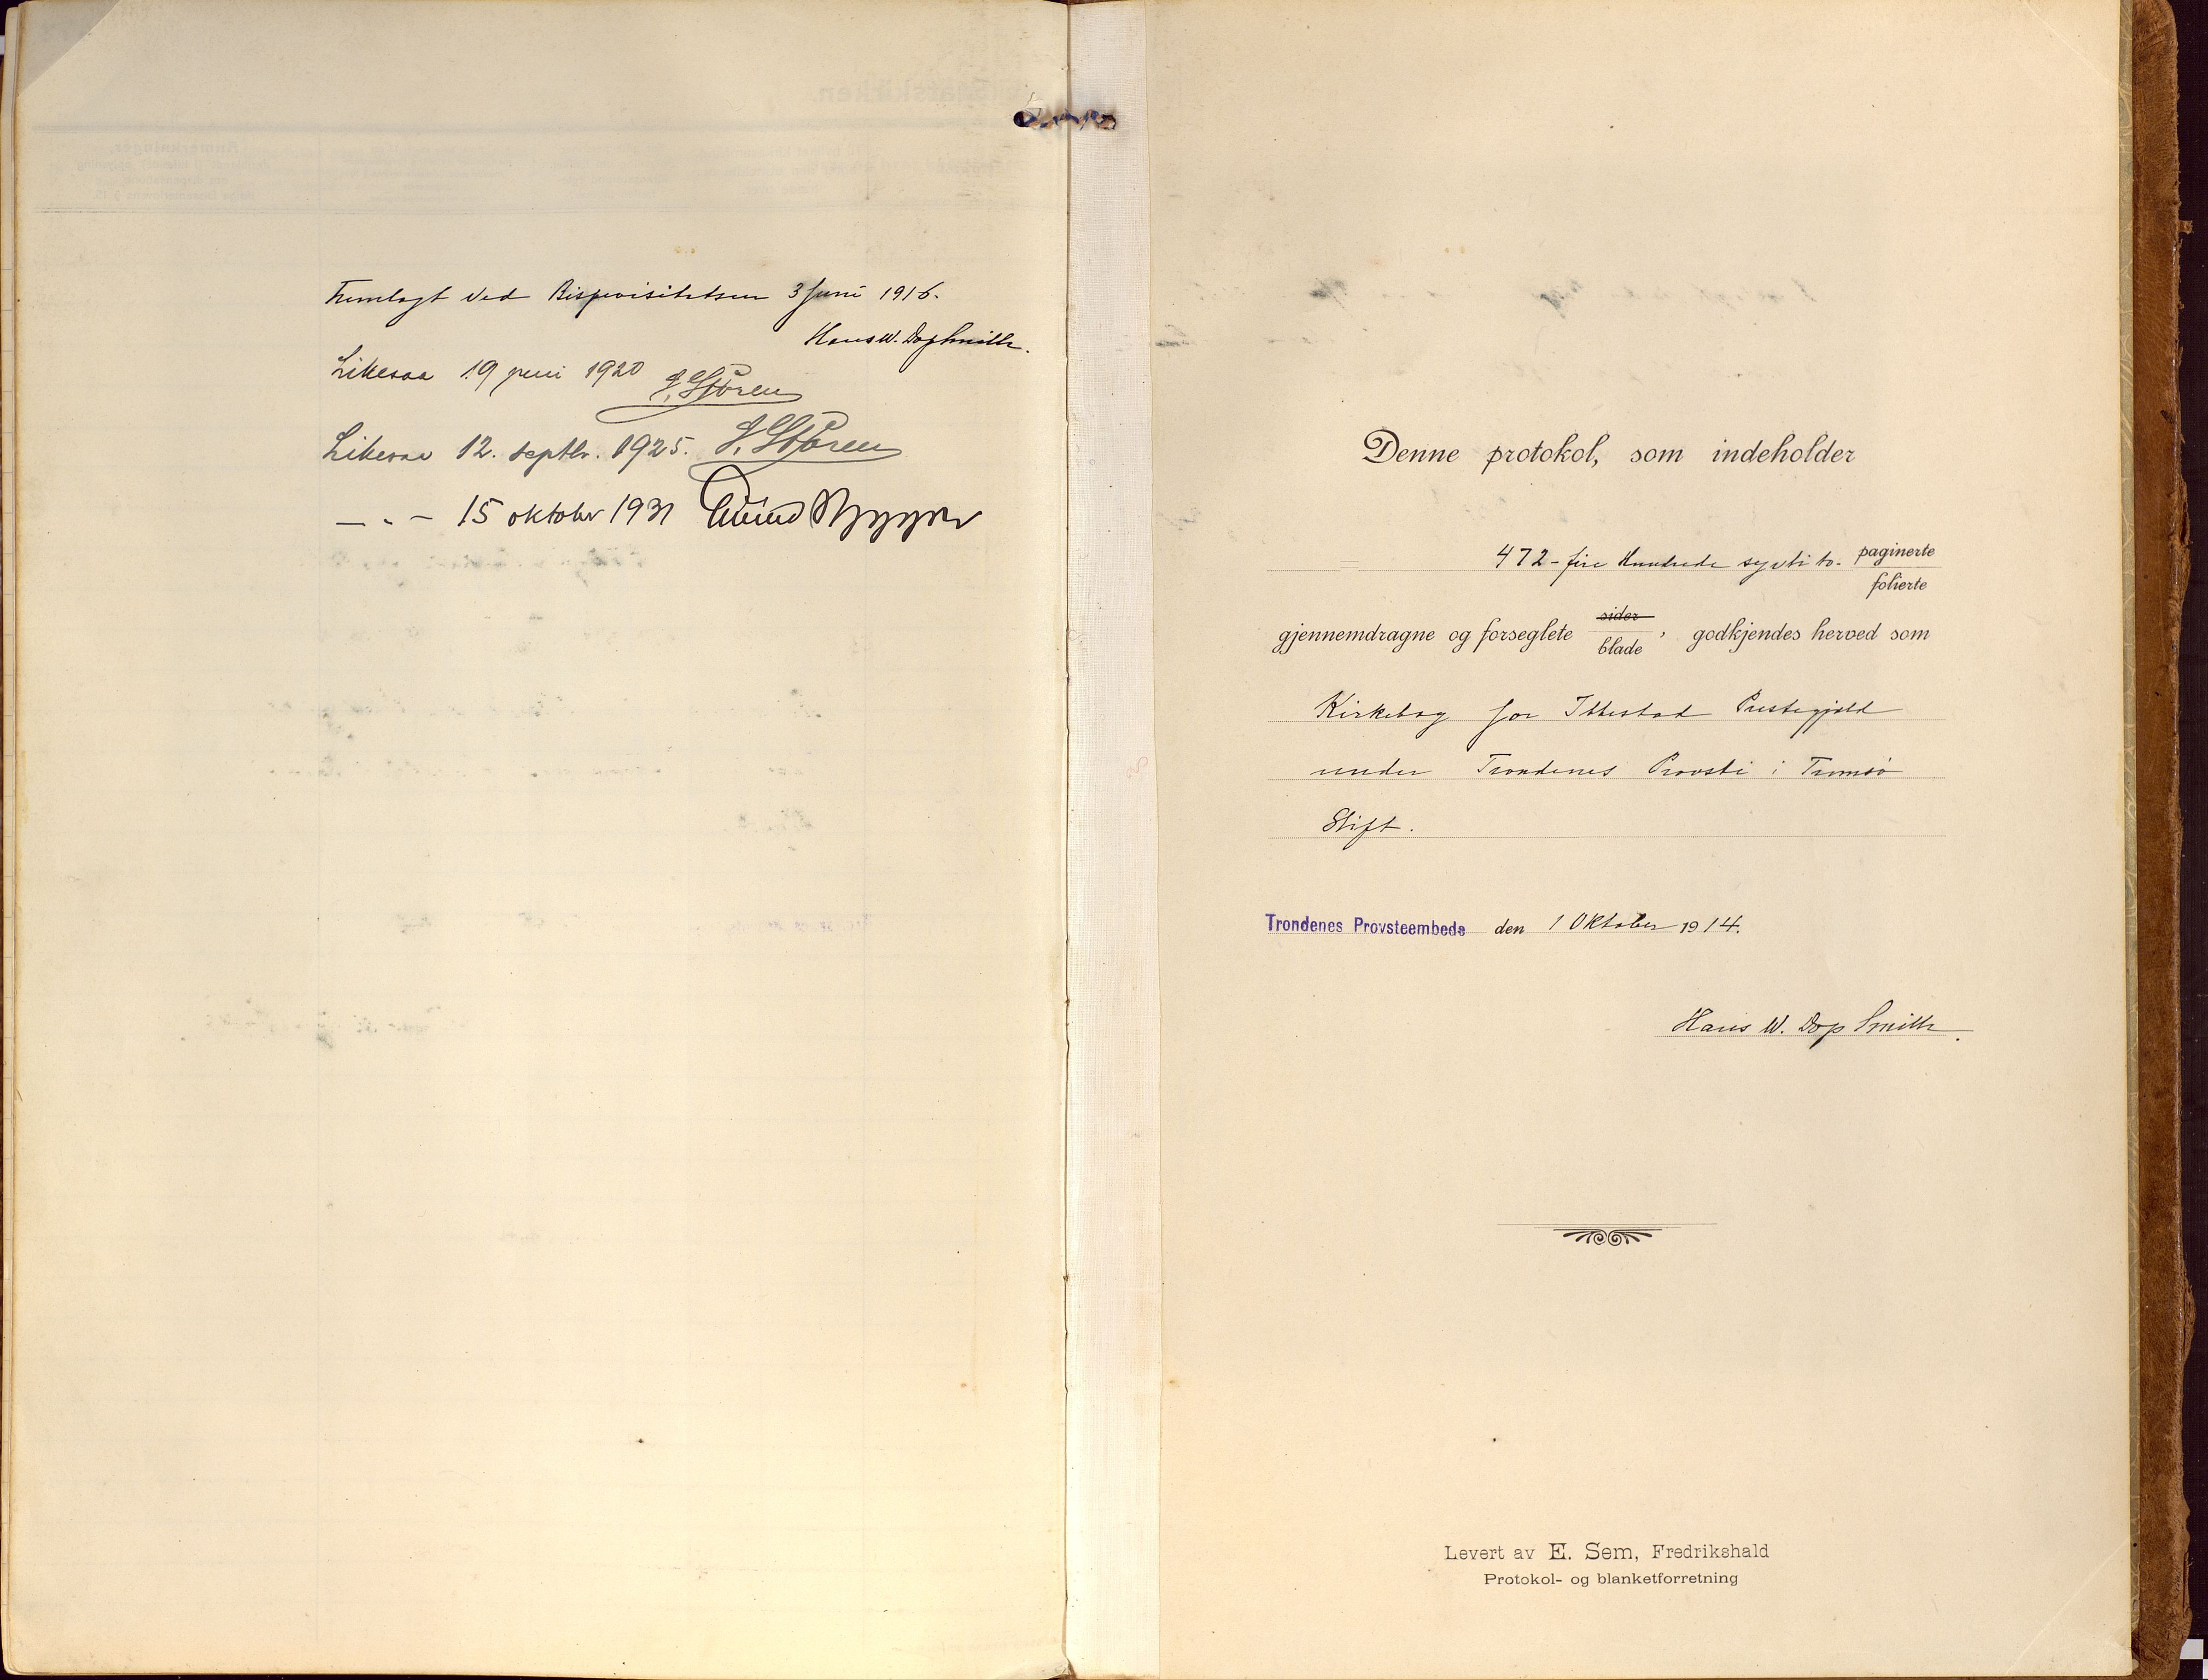 Fremlagt ved Bispevisitatsen 3 Juni 1916.
Hans W. Dop Smith.
Likesaa 19 juni 1920 J. Støren
Likesaa 12. septbr. 1925. J. Støren
— „ — 15 oktober 1931 Eivind Berggrav
Denne protokol, som indeholder
472 - fire Hundrede sytti to - paginerte
folierte
gjennemdragne og forseglete sider
blade, godkjendes herved som
Kirkebog for Ibbestad Prestegjeld
under Trondenes Provsti i Tromsø
Stift.
Trondenes Provsteembede den 1 Oktober 1914.
Hans W. Dop Smith.
Levert av E. Sem, Fredrikshald
Protokol- og blanketforretning